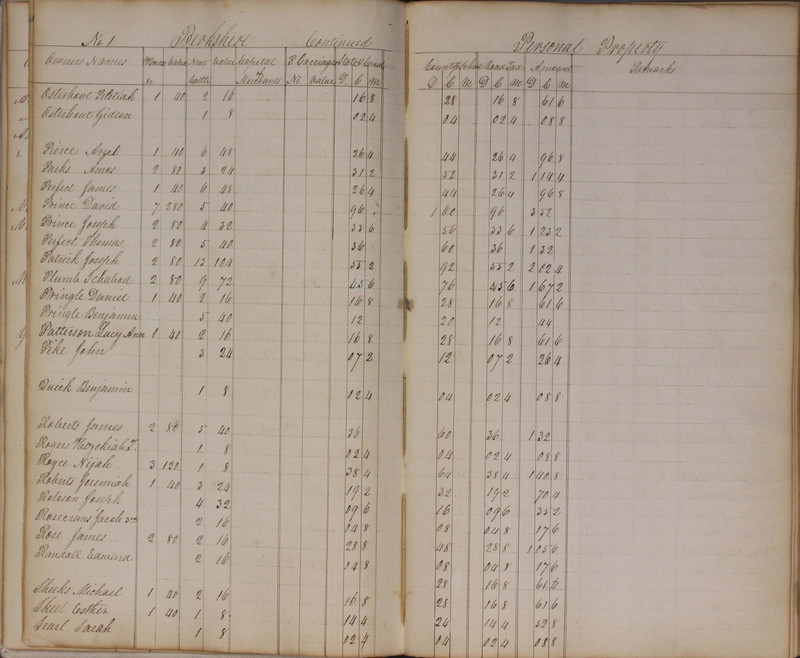 No 1 Berkshire Continued Personal Property
Owners Names Horses Value Neat Cattle Value Capital Merchants P. Carriages No Value State & Canal D. C M County & School D C M Road Tax D C M Amount D C M Remarks
Osterhout Peletiah 1 40 2 16 16 8 28 16 8 61 6
Osterhout Gideon 1 8 02 4 04 02 4 08 8
Pierce Azgel 1 40 6 48 26 4 44 26 4 96 8
Parks Amos 2 80 3 24 31 2 52 31 2 1 14 4
Perfect James 1 40 6 48 26 4 44 26 4 96 8
Prince David 7 280 5 40 96 1 60 96 3 52
Prince Joseph 2 80 4 32 33 6 56 33 6 1 23 2
Perfect Thomas 2 80 5 40 36 60 36 1 32
Patrick Joseph 2 80 13 104 55 2 92 55 2 2 02 4
Plumb Ichabod 2 80 9 72 45 6 76 45 6 1 67 2
Pringle Daniel 1 40 2 16 16 8 28 16 8 61 6
Pringle Benjamin 5 40 12 20 12 44
Patterson Lucy Ann 1 40 2 16 16 8 28 16 8 61 6
Pike John 3 24 07 2 12 07 2 26 4
Quick Benjamin 1 8 02 4 04 02 4 08 8
Roberts James 2 80 5 40 36 60 36 1 32
Rogers Hezekiah 1 8 02 4 04 02 4 08 8
Royce Nijah 3 120 1 8 38 4 64 38 4 1 40 8
Roberts Jeremiah 1 40 3 24 19 2 32 19 2 70 4
Roloson Joseph 4 32 09 6 16 09 6 35 2
Rosecrans Jacob 3rd 2 16 04 8 08 04 8 17 6
Rose James 2 80 2 16 28 8 48 28 8 1 05 6
Randall Edmund 2 16 04 8 08 04 8 17 6
Sheeks Michael 1 40 2 16 16 8 28 16 8 61 6
28 16 8 61 6
Skeel Esther 1 40 1 8 14 4 24 14 4 52 8
Searl Sarah 1 8 02 4 04 02 4 08 8